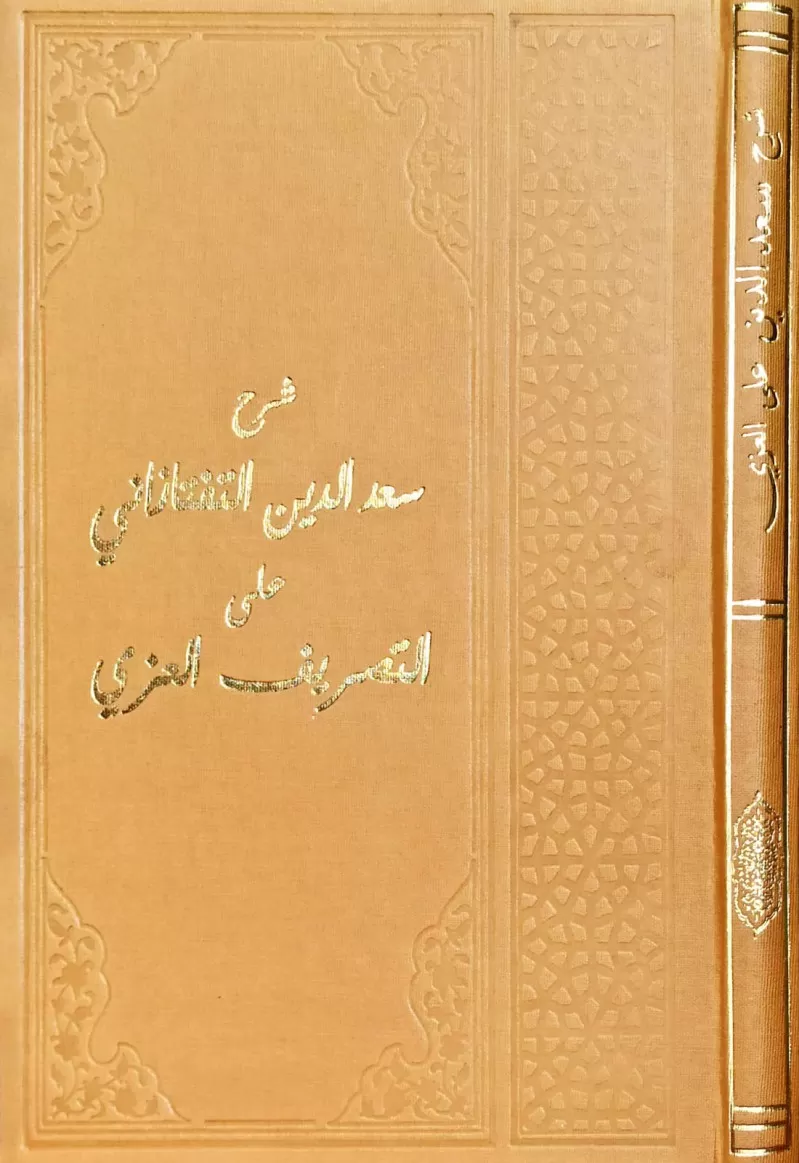 شرح
سعد الدين التفتازاني
على
التصريف العزي
شرح سعد الدين على العزي